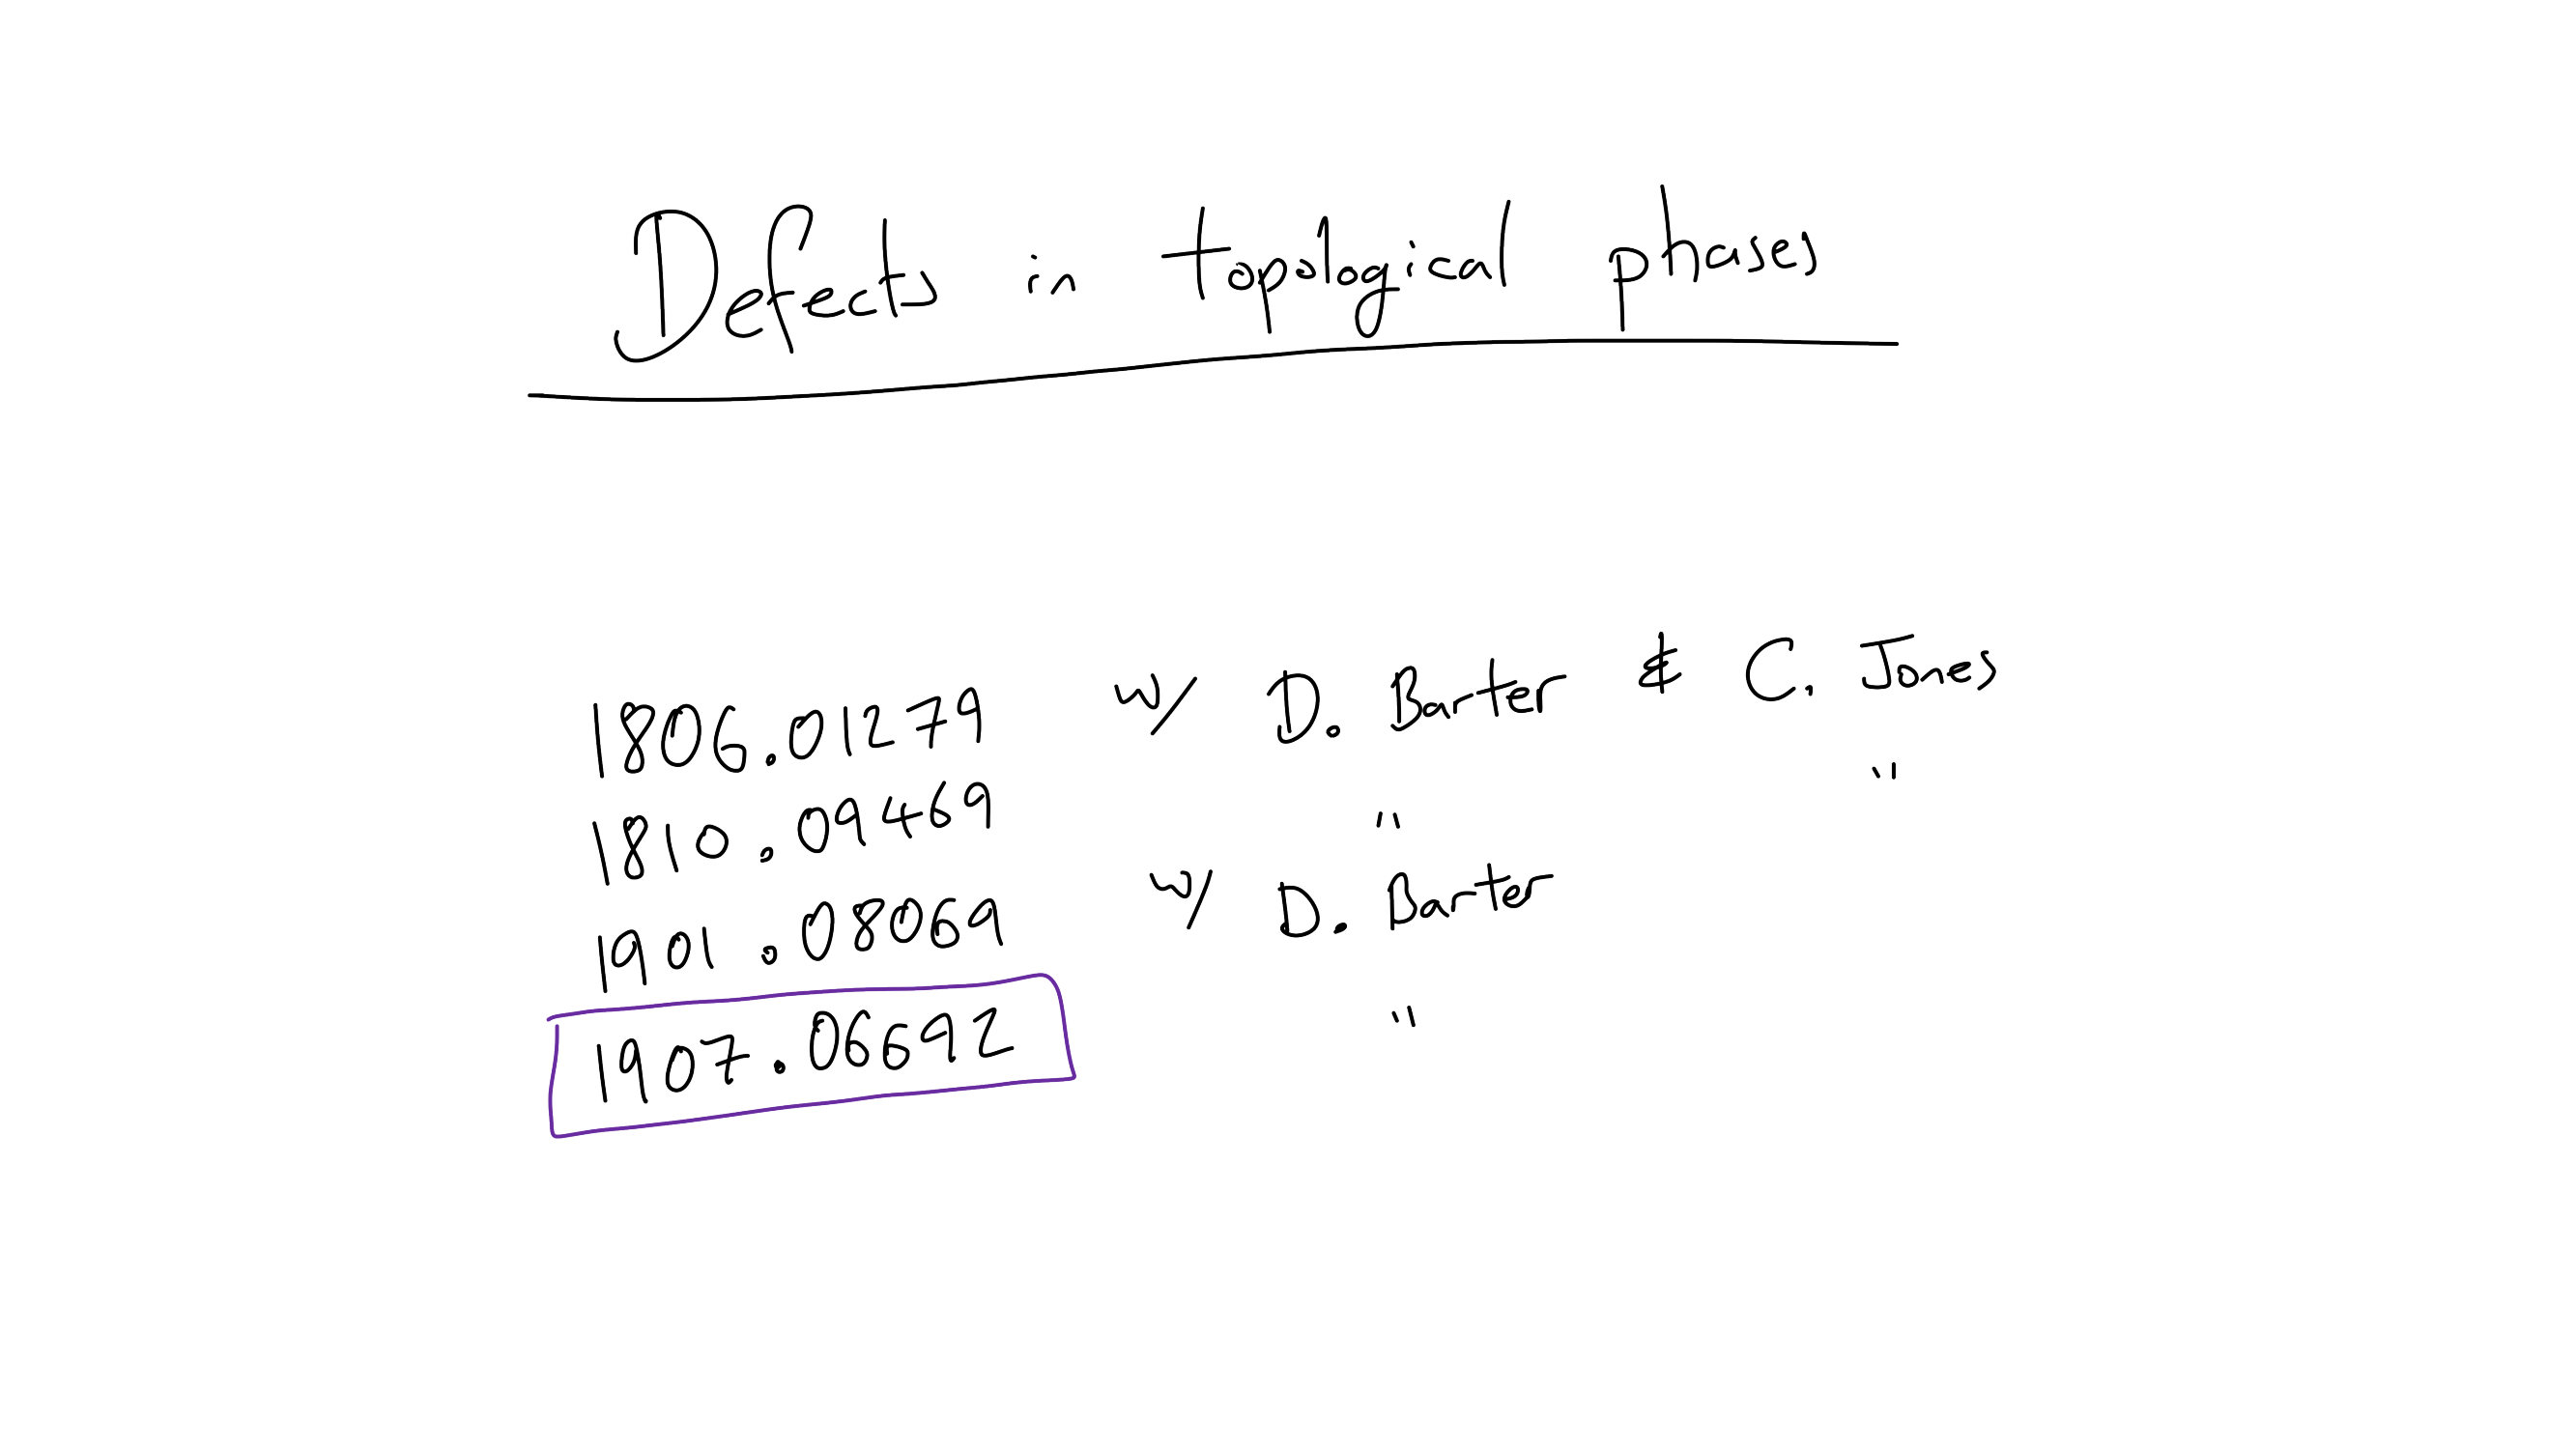 Defects in topological phases
1806.01279 w/ D. Barter & C. Jones
1810.09469 " "
1901.08069 w/ D. Barter
1907.06692 "